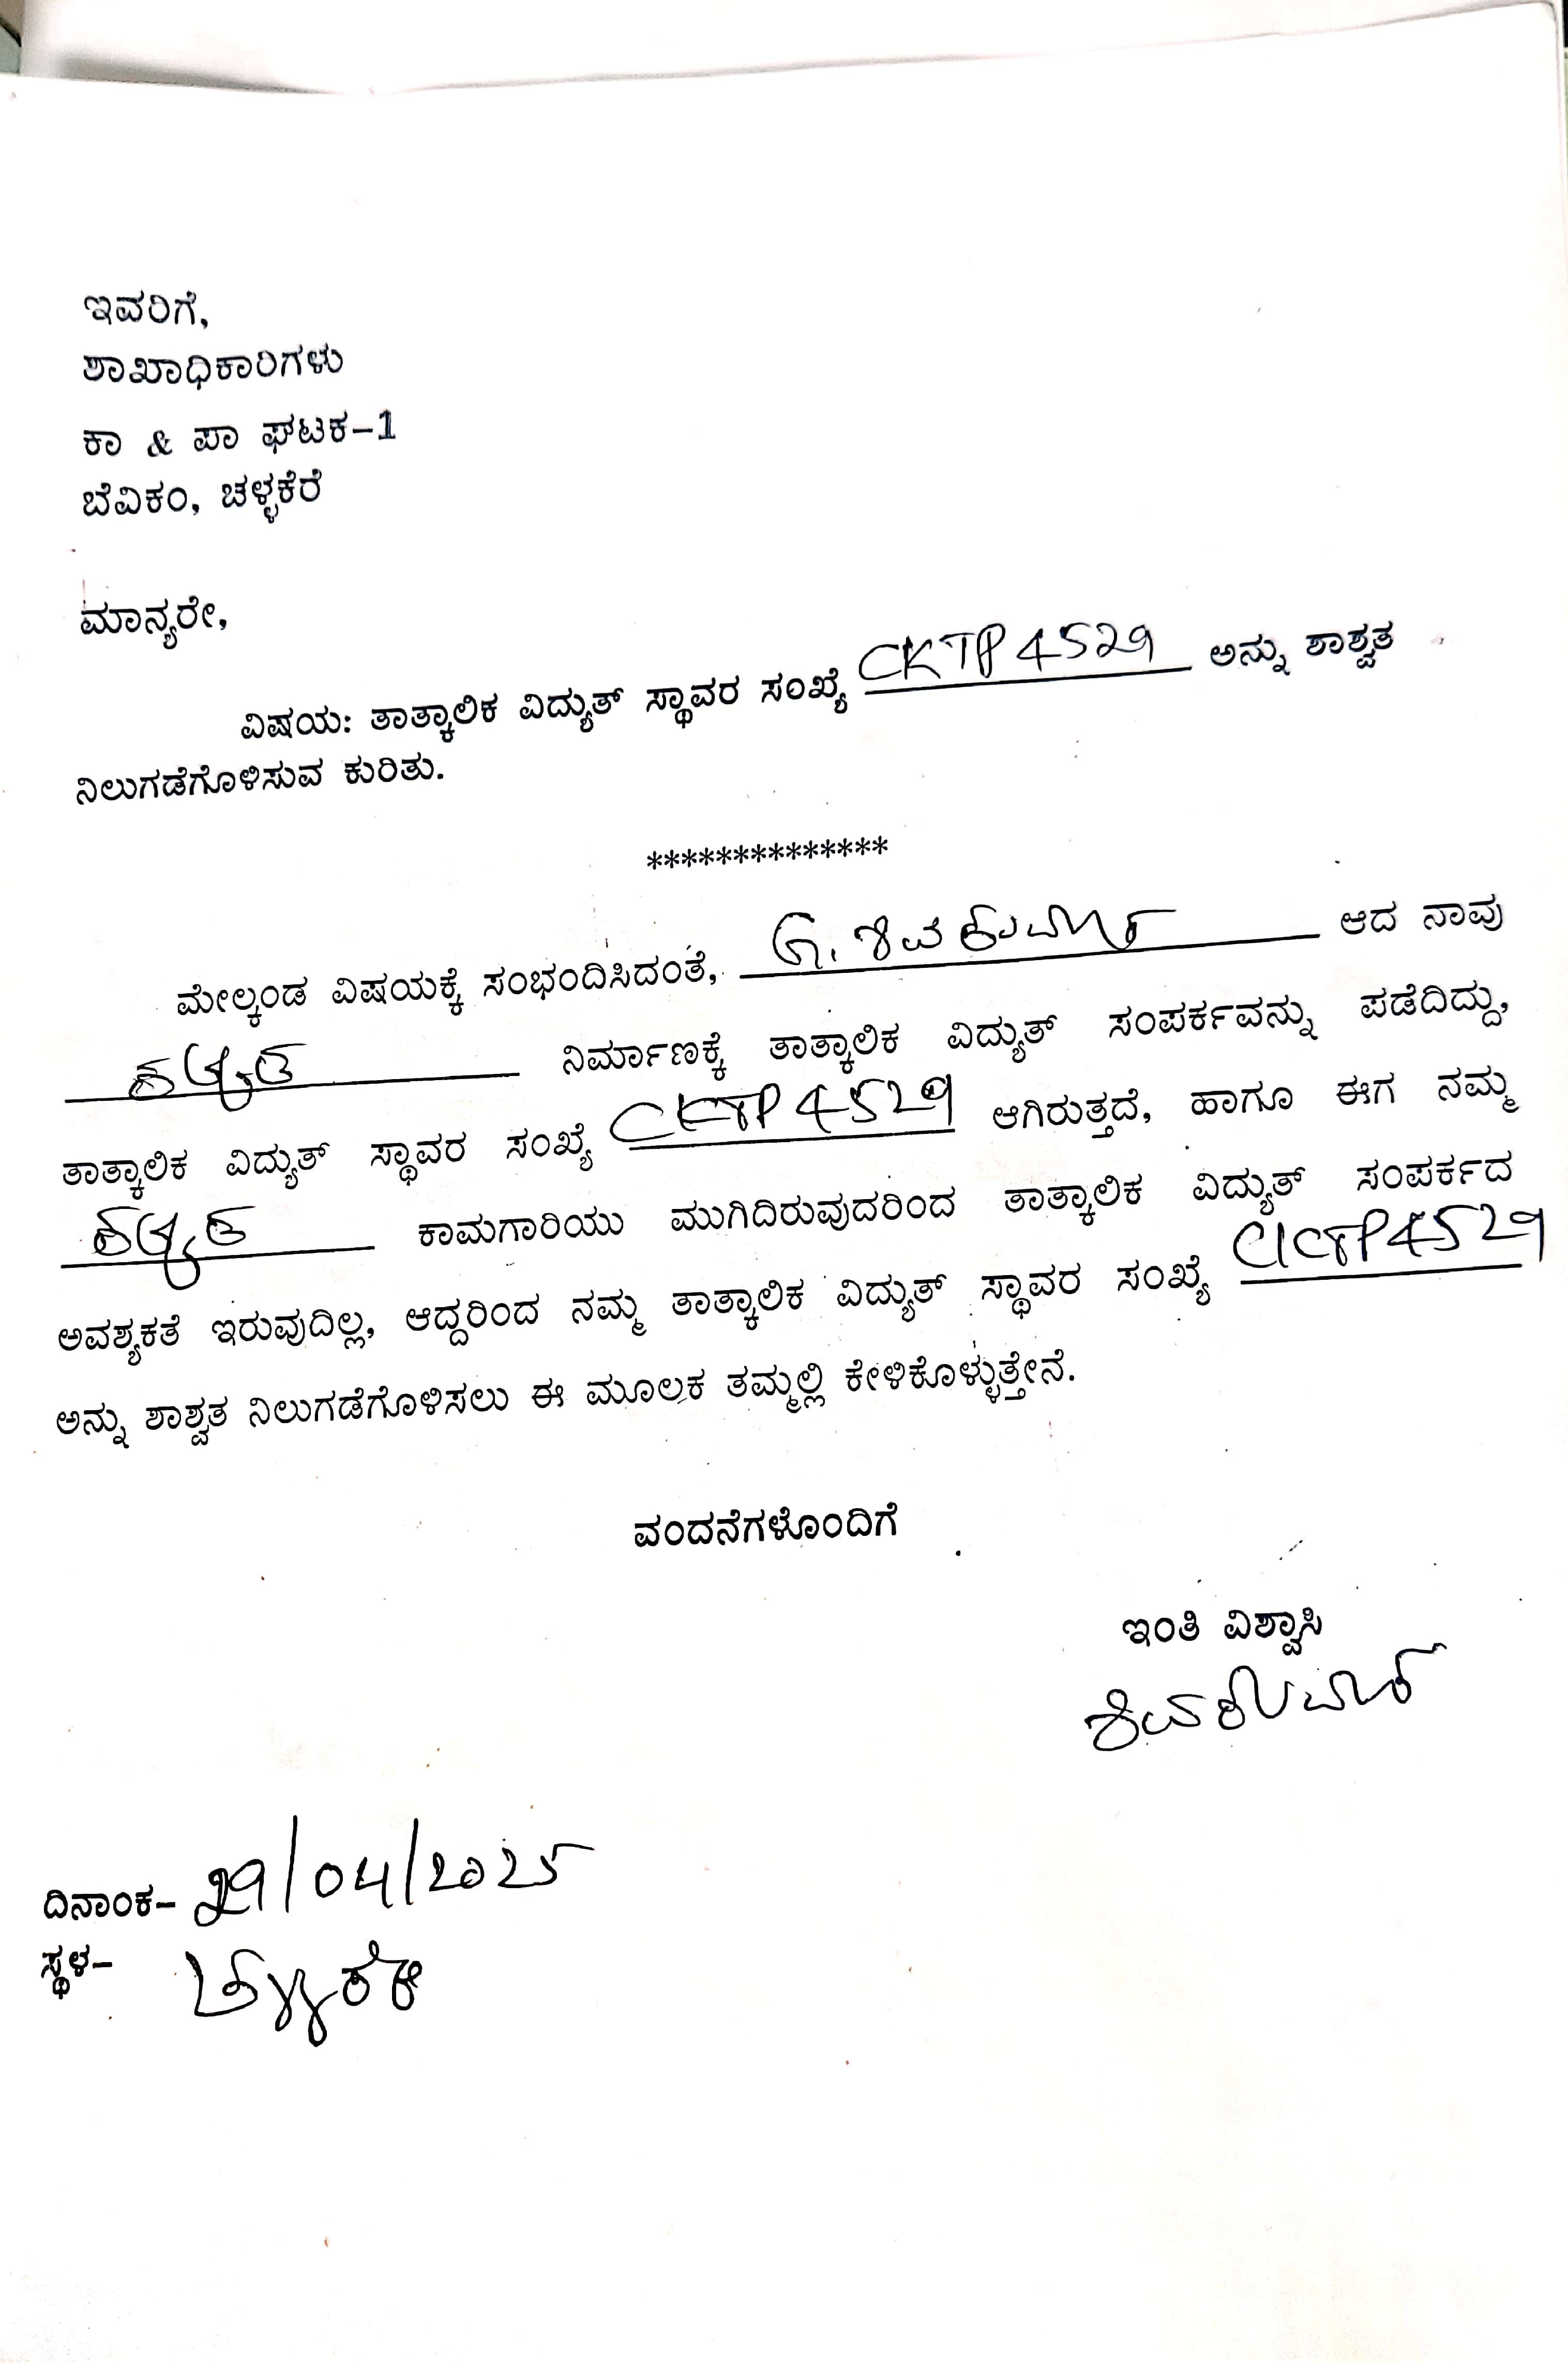 ಇವರಿಗೆ,
ಶಾಖಾಧಿಕಾರಿಗಳು
ಕಾ & ಪಾ ಘಟಕ-1
ಬೆವಿಕಂ, ಚಳ್ಳಕೆರೆ
ಮಾನ್ಯರೇ,
ವಿಷಯ: ತಾತ್ಕಾಲಿಕ ವಿದ್ಯುತ್ ಸ್ಥಾವರ ಸಂಖ್ಯೆ CKTP4529 ಅನ್ನು ಶಾಶ್ವತ
ನಿಲುಗಡೆಗೊಳಿಸುವ ಕುರಿತು.
**************
ಮೇಲ್ಕಂಡ ವಿಷಯಕ್ಕೆ ಸಂಭಂದಿಸಿದಂತೆ, G. ಶಿವಕುಮಾರ್ ಆದ ನಾವು
ನಿರ್ಮಾಣಕ್ಕೆ ತಾತ್ಕಾಲಿಕ ವಿದ್ಯುತ್ ಸಂಪರ್ಕವನ್ನು ಪಡೆದಿದ್ದು,
ತಾತ್ಕಾಲಿಕ ವಿದ್ಯುತ್ ಸ್ಥಾವರ ಸಂಖ್ಯೆ CKTP4529 ಆಗಿರುತ್ತದೆ, ಹಾಗೂ ಈಗ ನಮ್ಮ
ಕಾಮಗಾರಿಯು ಮುಗಿದಿರುವುದರಿಂದ ತಾತ್ಕಾಲಿಕ ವಿದ್ಯುತ್ ಸಂಪರ್ಕದ
ಅವಶ್ಯಕತೆ ಇರುವುದಿಲ್ಲ, ಆದ್ದರಿಂದ ನಮ್ಮ ತಾತ್ಕಾಲಿಕ ವಿದ್ಯುತ್ ಸ್ಥಾವರ ಸಂಖ್ಯೆ CKTP4529
ಅನ್ನು ಶಾಶ್ವತ ನಿಲುಗಡೆಗೊಳಿಸಲು ಈ ಮೂಲಕ ತಮ್ಮಲ್ಲಿ ಕೇಳಿಕೊಳ್ಳುತ್ತೇನೆ.
ವಂದನೆಗಳೊಂದಿಗೆ
ಇಂತಿ ವಿಶ್ವಾಸಿ
ಶಿವಕುಮಾರ್
ದಿನಾಂಕ- 29/04/2025
ಸ್ಥಳ- ಚಳ್ಳಕೆರೆ